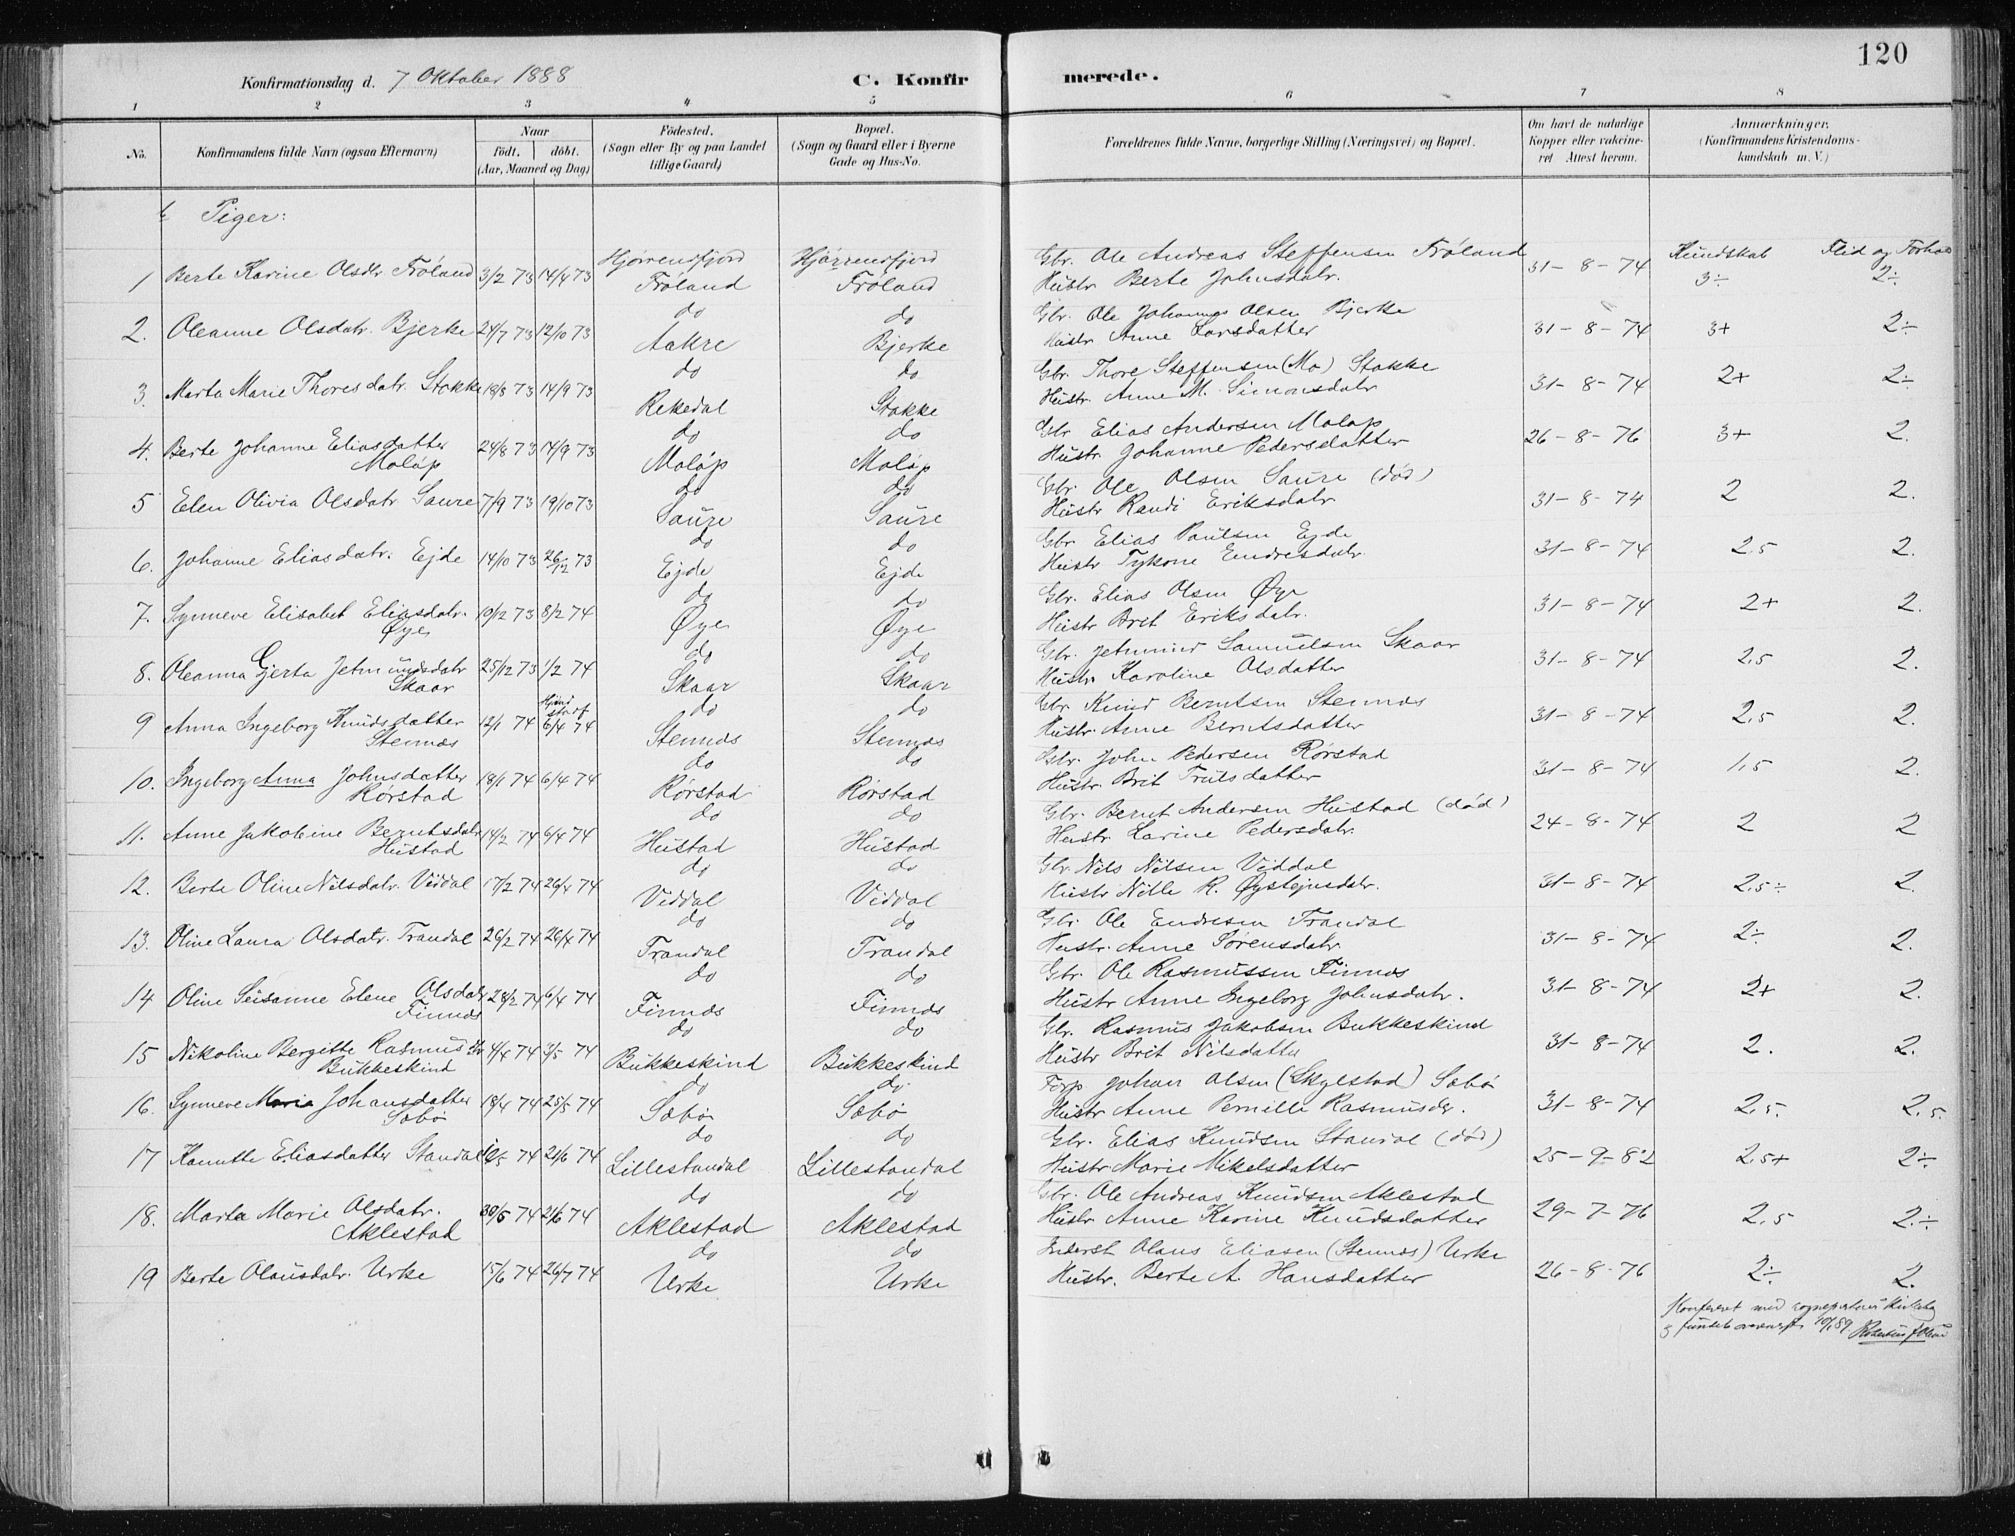 120
Konfirmationsdag d. 7 Oktober 1888
C. Konfirmerede.
1 2 3 4 5 6 7 8
No. Konfirmandens fulde Navn (ogsaa Efternavn) Naar født, døbt. (Aar, Maaned og Dag) Fødested. (Sogn eller By og paa Landet tillige Gaard) Bopæl. (Sogn og Gaard eller i Byerne Gade og Hus-No. Forældrenes fulde Navne, borgerlige Stilling (Næringsvei) og Bopæl. Om havt de naturlige Kopper eller vakcineret Attest herom. Anmærkninger. (Konfirmandens Kristendomskundskab m. V.)
Piger:
Kundskab Flid og Forhol
1 Berte Karine Olsdtr Frøland 3/2 73 14/4 73 Hjørrendfjord Frøland Hjørrendfjord Frøland Gbr. Ole Andreas Steffensen Frøland
Hustr Berte Johnsdatr. 31-8-74 3÷ 2÷
2. Oleanne Olsdatr. Bjerke 24/7 73 12/10 73 do Aakre do Bjerke Gbr. Ole Johannes Olsen Bjerke
Hustr Anne Larsdatter 31-8-74 3+ 2÷
3. Marta Marie Thoresdatr. Stokke 18/8 73 14/9 73 do Rekedal do Stokke Gbr. Thore Steffensen (Mo) Stokke
Hustr. Anne M. Simonsdatr 31-8-74 2+ 2÷
4. Berte Johanne Eliasdatter Moløp 24/8 73 14/9 73 do Moløp do Moløp Gbr Elias Andersen Moløp
Hustr Johanne Pedersdatter 26-8-76 3+ 2.
5 Elen Olivia Olsdatr Saure 7/9 73 19/10 73 do Saure do Saure Gbr. Ole Olsen Saure (død)
Hustr Randi Eriksdatr 31-8-74 2 2.
6. Johanne Eliasdatr. Ejde 14/10 73 26/12 73 do Ejde do Ejde Gbr Elias Paulsen Ejde
Hustr Tykone Endresdatr. 31-8-74 2,5 2.
7. Synneve Elisabet Eliasdatr. Øye 19/12 73 8/2 74 do Øye do Øye Gbr. Elias Olsen Øye
Hustr Brit Eriksdatr. 31-8-74 2+ 2.
8. Oleanna Gjerta Jetmundsdatr Skaar 25/12 73 1/2 74 do Skaar do Skaar Gbr. Jetmund Samuelsen Skaar
Hustr Karoline Olsdatter 31-8-74 2,5 2.
9 Anna Ingeborg Knudsdatter Stennæs 12/1 74 6/4 74 do Stennæs do Stennæs Gbr Knud Berntsen Stennæs
Hustr. Anne Berntsdatter 31-8-74 2,5 2.
10. Ingeborg Anna Johnsdatter Rørstad 18/1 74 6/4 74 do Rørstad do Rørstad Gbr. John Pedersen Rørstad
Hustr Brit Trulsdatter 31-8-74 1,5 2.
11. Anne Jakobine Berntsdatr Hustad 14/2 74 6/4 74 do Hustad do Hustad Gbr. Bernt Andersen Hustad (død)
Hustr Karine Pedersdatr. 24-8-74 2 2
12. Berte Oline Nilsdatr. Viddal 17/2 74 26/4 74 do Viddal do Viddal Gbr Nils Nilsen Viddal
Hustr Nille R. Øystejnsdatr. 31-8-74 2,5÷ 2.
13. Oline Laura Olsdatr. Trandal 26/2 74 26/4 74 do Trandal do Trandal Gbr. Ole Endresen Trandal
Hustr. Anne Sørensdatr 31-8-74 2÷ 2.
14 Oline Susanne Elene Olsdatr Finnæs 28/2 74 6/4 74 do Finnæs do Finnæs Gbr. Ole Rasmussen Finnæs
Hustr Anne Ingeborg Johnsdatr. 31-8-74 2+ 2.
15 Nikoline Bergitte Rasmusdtr Bukkeskind 4/4 74 3/5 74 do Bukkeskind do Bukkeskind Gbr. Rasmus Jakobsen Bukkeskind
Hustr Brit Nilsdatter 31-8-74 2. 2.
16. Synneve Marie Johansdatter Sæbø 18/4 74 25/5 74 do Sæbø do Sæbø Forp Johan Olsen (Skylstad) Sæbø
Hustr Anne Pernille Rasmusdr. 31-8-74 2,5. 2,5.
17 Kanutte Eliasdatter Standal 74 21/6 74 do Lillestandal do Lillestandal Gbr. Elias Knudsen Standal (død)
Hustr Marie Mikelsdatter 25-9-82 2,5+ 2÷
18. Marta Marie Olsdatr. Aklestad 30/5 74 21/6 74 do Aklestad do Aklestad Gbr. Ole Andreas Knudsen Aklestad
Hustr Anne Karine Knudsdatter 29-7-76 2,5 2.÷
19 Berte Olausdatr. Urke 15/6 74 26/7 74 do Urke do Urke Inderst Olaus Eliasen (Stennæs) Urke
Hustr. Berte A. Hansdatter 26-8-76 2÷ 2.
Konfereret med sogneprestens